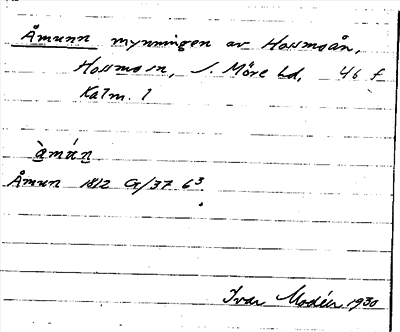 Åmunn mynningen av Hossmoån,
Hossmo sn, S. Möre hd, 46 f
Kalm. l
àmán
Åmun 1812 G/37 6³
Ivar Modéer 1930